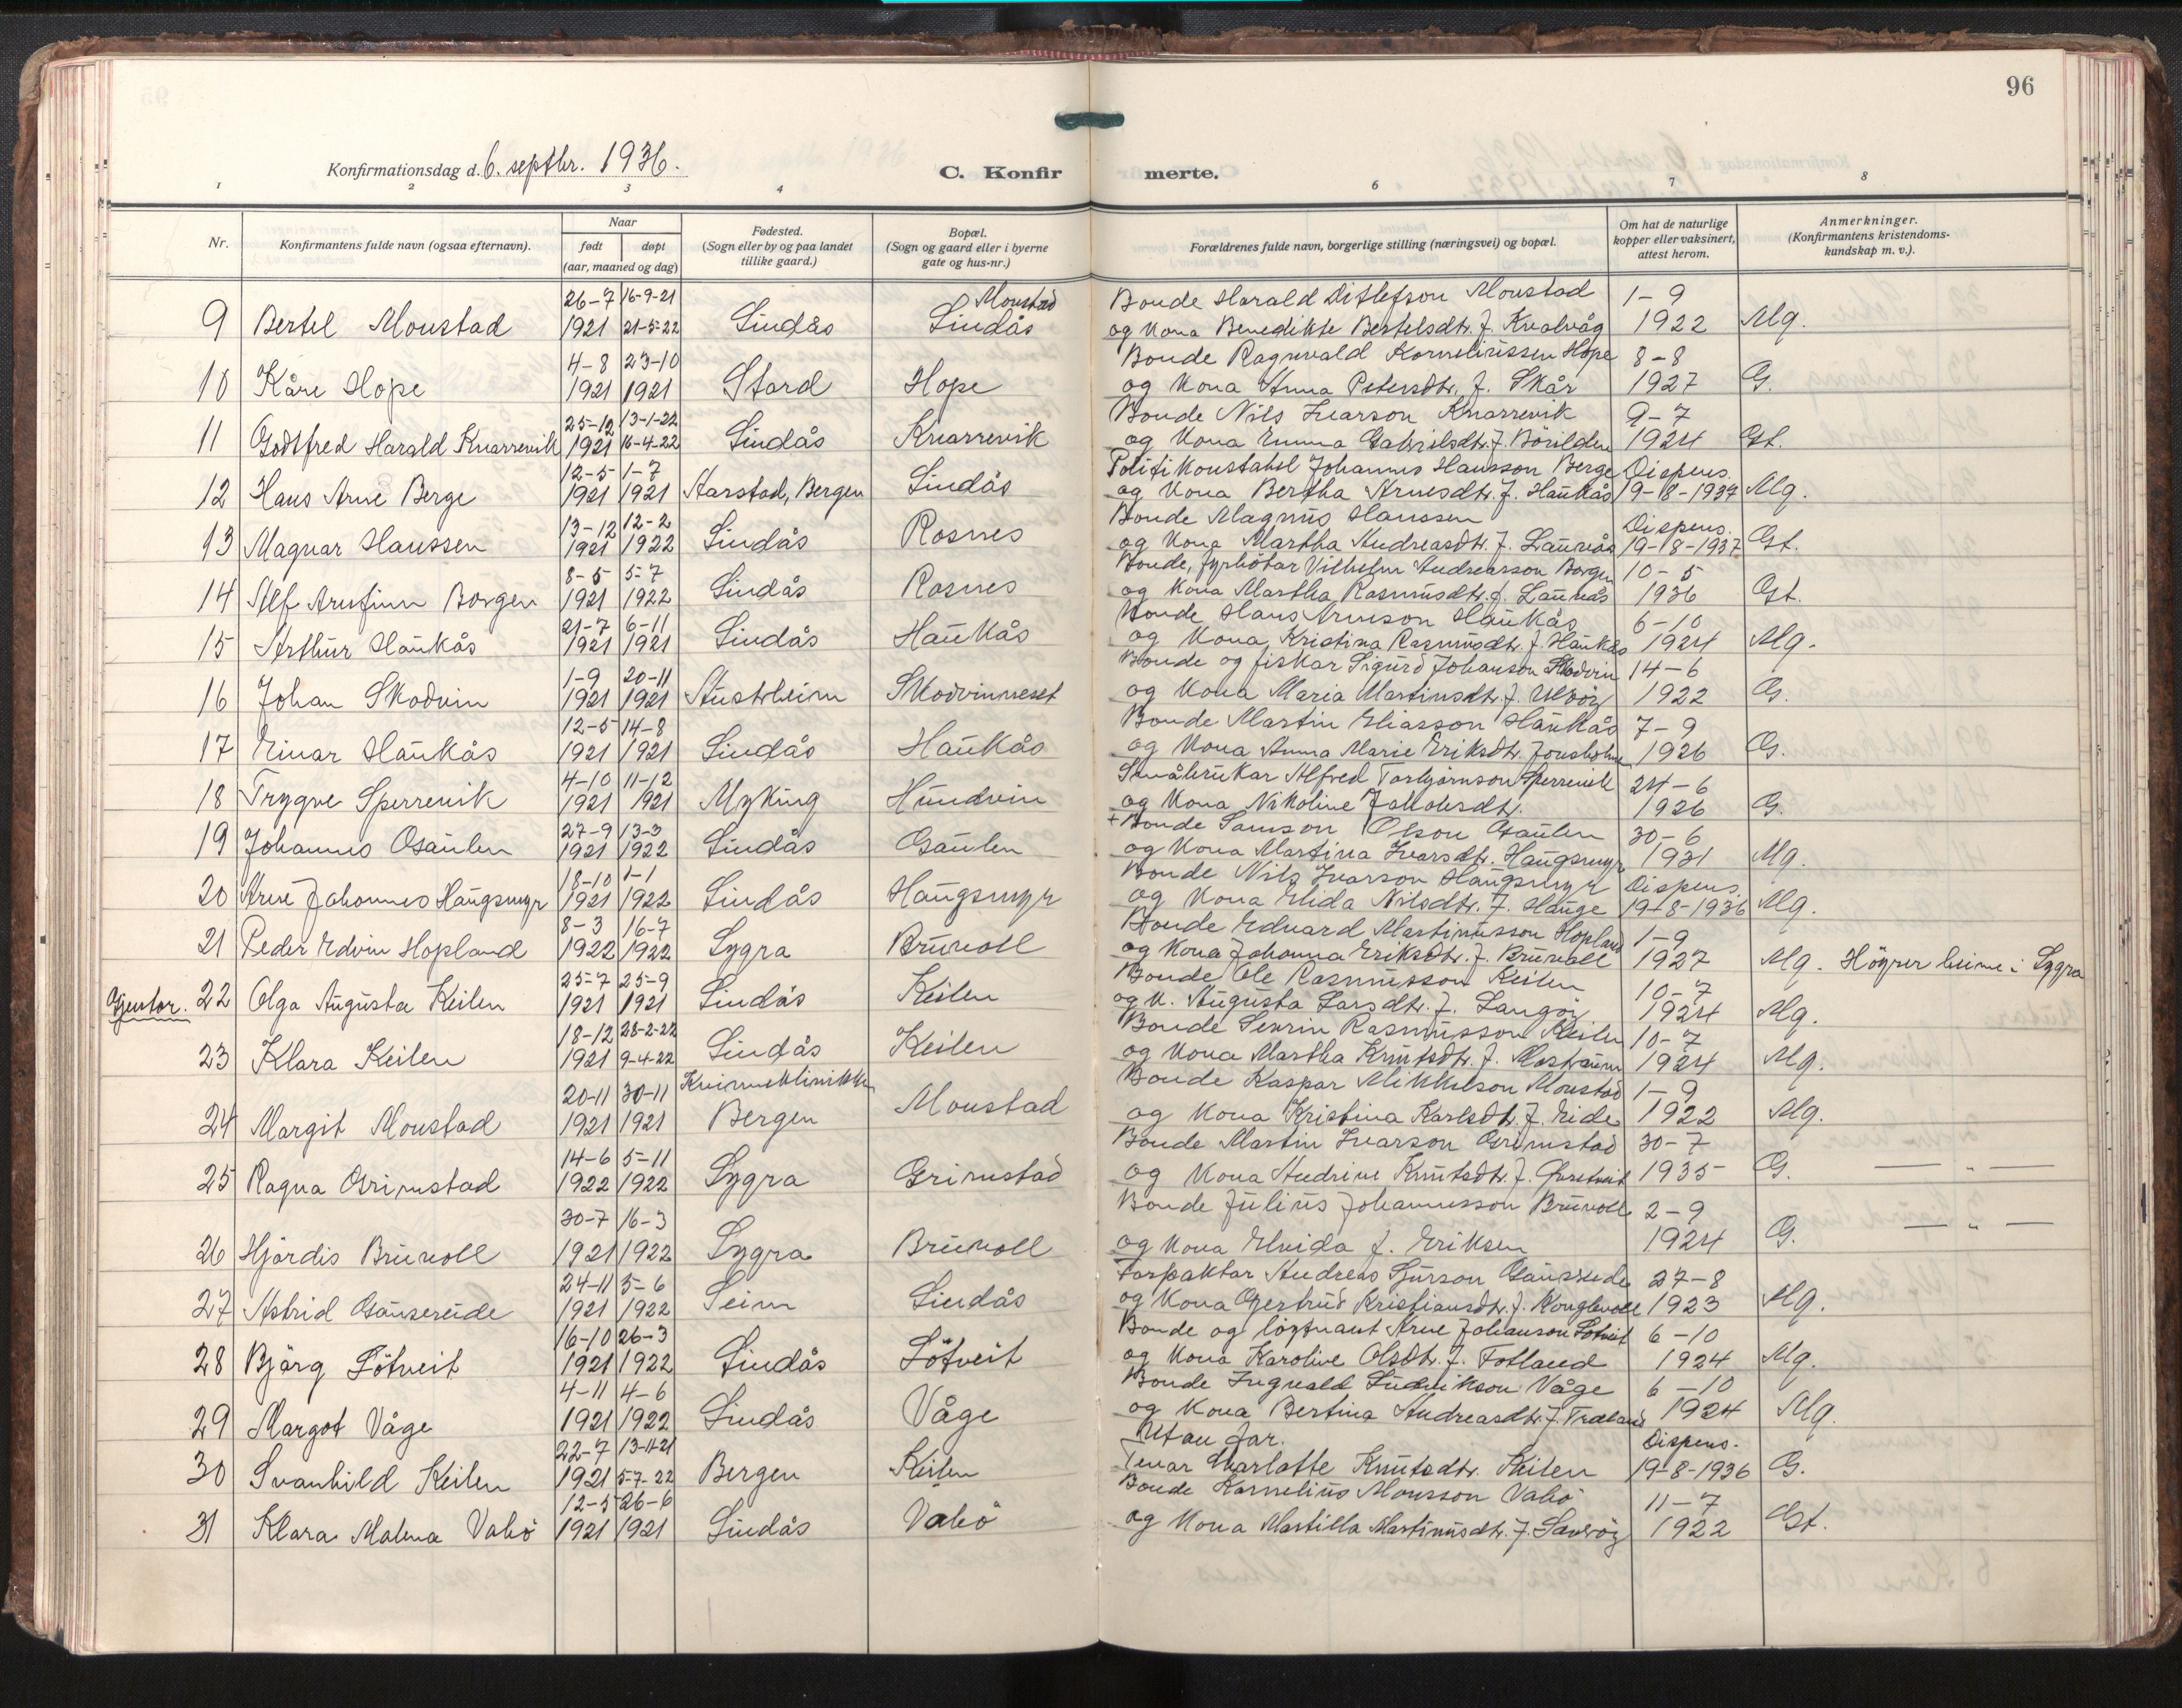 96
Konfirmationsdag d. 6. septbr. 1936.
C. Konfirmerte.
1 2 3 4 6 7 8
Nr.
Konfirmantens fulde navn (ogsaa efternavn).
Naar
født døpt
(aar, maaned og dag)
Fødested.
(Sogn eller by og paa landet
tillike gaard.)
Bopæl.
(Sogn og gaard eller i byerne
gate og hus-nr.)
Forældrenes fulde navn, borgerlige stilling (næringsvei) og bopæl.
Om hat de naturlige
kopper eller vaksinert,
attest herom.
Anmerkninger.
(Konfirmantens kristendoms-
kundskap m. v.).
26-7 16-9-21 Monstad Bonde Harald Ditlefson Monstad 1-9
9 Bertel Monstad 1921 21-5-22 Lindås Lindås og kona Benedikte Bertelsdtr. f. Kvalvåg 1922 Mg.
4-8 23-10 Bonde Ragnvald Korneliussen Hope 8-8
10 Kåre Hope 1921 1921 Stord Hope og kona Anna Petersdtr. f. Skår 1927 G.
25-12 13-1-22 Bonde Nils Ivarson Knarrevik 9-7
11 Godtfred Harald Knarrevik 1921 16-4-22 Lindås Knarrevik og kona Emma Gabrielsdtr. f. Börilden 1924 Gt.
12-5 1-7 Politikonstabel Johannes Hansson Berge Dispens.
12 Hans Arne Berge 1921 1921 Aarstad, Bergen Lindås og kona Bertha Arnesdtr. f. Haukås 19-8-1937 Mg.
13-12 12-2 Bonde Magnus Hanssen Dispens.
13 Magnar Hanssen 1921 1922 Lindås Rosnes og kona Martha Andreasdtr. f. Laurås 19-8-1937 Gt.
8-5 5-7 Bonde, fyrbötar Vilhelm Andreasson Borgen 10-5
14 Alf Arnfinn Borgen 1921 1922 Lindås Rosnes og kona Martha Rasmusdtr. f. Laurås 1936 Gt.
21-7 6-11 Bonde Hans Arneson Haukås 6-10
15 Arthur Haukås 1921 1921 Lindås Haukås og kona Kristina Rasmusdtr. f. Haukås 1924 Mg.
1-9 20-11 Bonde og fiskar Sigurd Johanson Skodvin 14-6
16 Johan Skodvin 1921 1921 Austrheim Skodvinneset og kona Maria Martinsdtr. f. Ulvöy 1922 G.
12-5 14-8 Bonde Martin Eliasson Haukås 7-9
17 Einar Haukås 1921 1921 Lindås Haukås og kona Anna Marie Eriksdtr. Fonsholm 1926 G.
4-10 11-12 Småbrukar Alfred Torbjörnson Sperrevik 24-6
18 Trygve Sperrevik 1921 1921 Myking Hundvin og kona Nikoline Jakobsdtr. 1926 G.
27-9 13-3 + Bonde Samson Olson Gaulen 30-6
19 Johannes Gaulen 1921 1922 Lindås Gaulen og kona Martina Ivarsdtr. Haugsmyr 1931 Mg.
18-10 1-1 Bonde Nils Ivarson Haugsmyr Dispens.
20 Arne Johannes Haugsmyr 1921 1922 Lindås Haugsmyr og kona Elida Nilsdtr. f. Hauge 19-8-1936 Mg.
8-3 16-7 Bonde Edvard Martinusson Hopland 1-9
21 Peder Edvin Hopland 1922 1922 Lygra Bruvoll og kona Johanna Eriksdtr. f. Bruvoll 1927 Mg. Höyrer heime i Lygra
25-7 25-9 Bonde Ole Rasmusson Keilen 10-7
Gjentor. 22 Olga Augusta Keilen 1921 1921 Lindås Keilen og k. Augusta Larsdtr. f. Langöy 1924 Mg.
18-12 28-2-22 Bonde Severin Rasmusson Keilen 10-7
23 Klara Keilen 1921 9-4-22 Lindås Keilen og kona Martha Knutsdtr. f. Mostraum 1924 Mg.
20-11 30-11 Kvinneklinikken Bonde Kaspar Mikkelson Monstad 1-9
24 Margit Monstad 1921 1921 Bergen Monstad og kona Kristina Karlsdtr. f. Eide 1922 Mg.
14-6 5-11 Bonde Martin Ivarson Grimstad 30-7
25 Ragna Grimstad 1922 1922 Lygra Grimstad og kona Andrine Knutsdtr. f. 1935 G. — „ —
30-7 16-3 Bonde Julius Johannesson Bruvoll 2-9
26 Hjördis Bruvoll 1921 1922 Lygra Bruvoll og kona Elvida f. Eriksen 1924 G. — „ —
24-11 5-6 Forpaktar Andreas Sjurson Gausereide 27-8
27 Astrid Gausereide 1921 1922 Seim Lindås og kona Gjertrud Kristiansdtr. f. Konglevoll 1923 Mg.
16-10 26-3 Bonde og löytnant Arne Johanson Lötveit 6-10
28 Bjørg Lötveit 1921 1922 Lindås Lötveit og kona Karoline Olsdtr. f. Fotland 1924 Mg.
4-11 4-6 Bonde Ingvald Ludvikson Våge 6-10
29 Margot Våge 1921 1922 Lindås Våge og kona Bertina Andreasdtr. f. Træland 1924 Mg.
22-7 13-11-21 Utan far. Dispens.
30 Svanhild Keilen 1921 5-7-22 Bergen Keilen Tenar Charlotte Knutsdtr. Keilen 19-8-1936 G.
12-5 26-6 Bonde Kornelius Monsson Vabö 11-7
31 Klara Malena Vabö 1921 1921 Lindås Vabö og kona Martilla Martinusdtr. f. Sandöy 1922 Gt.